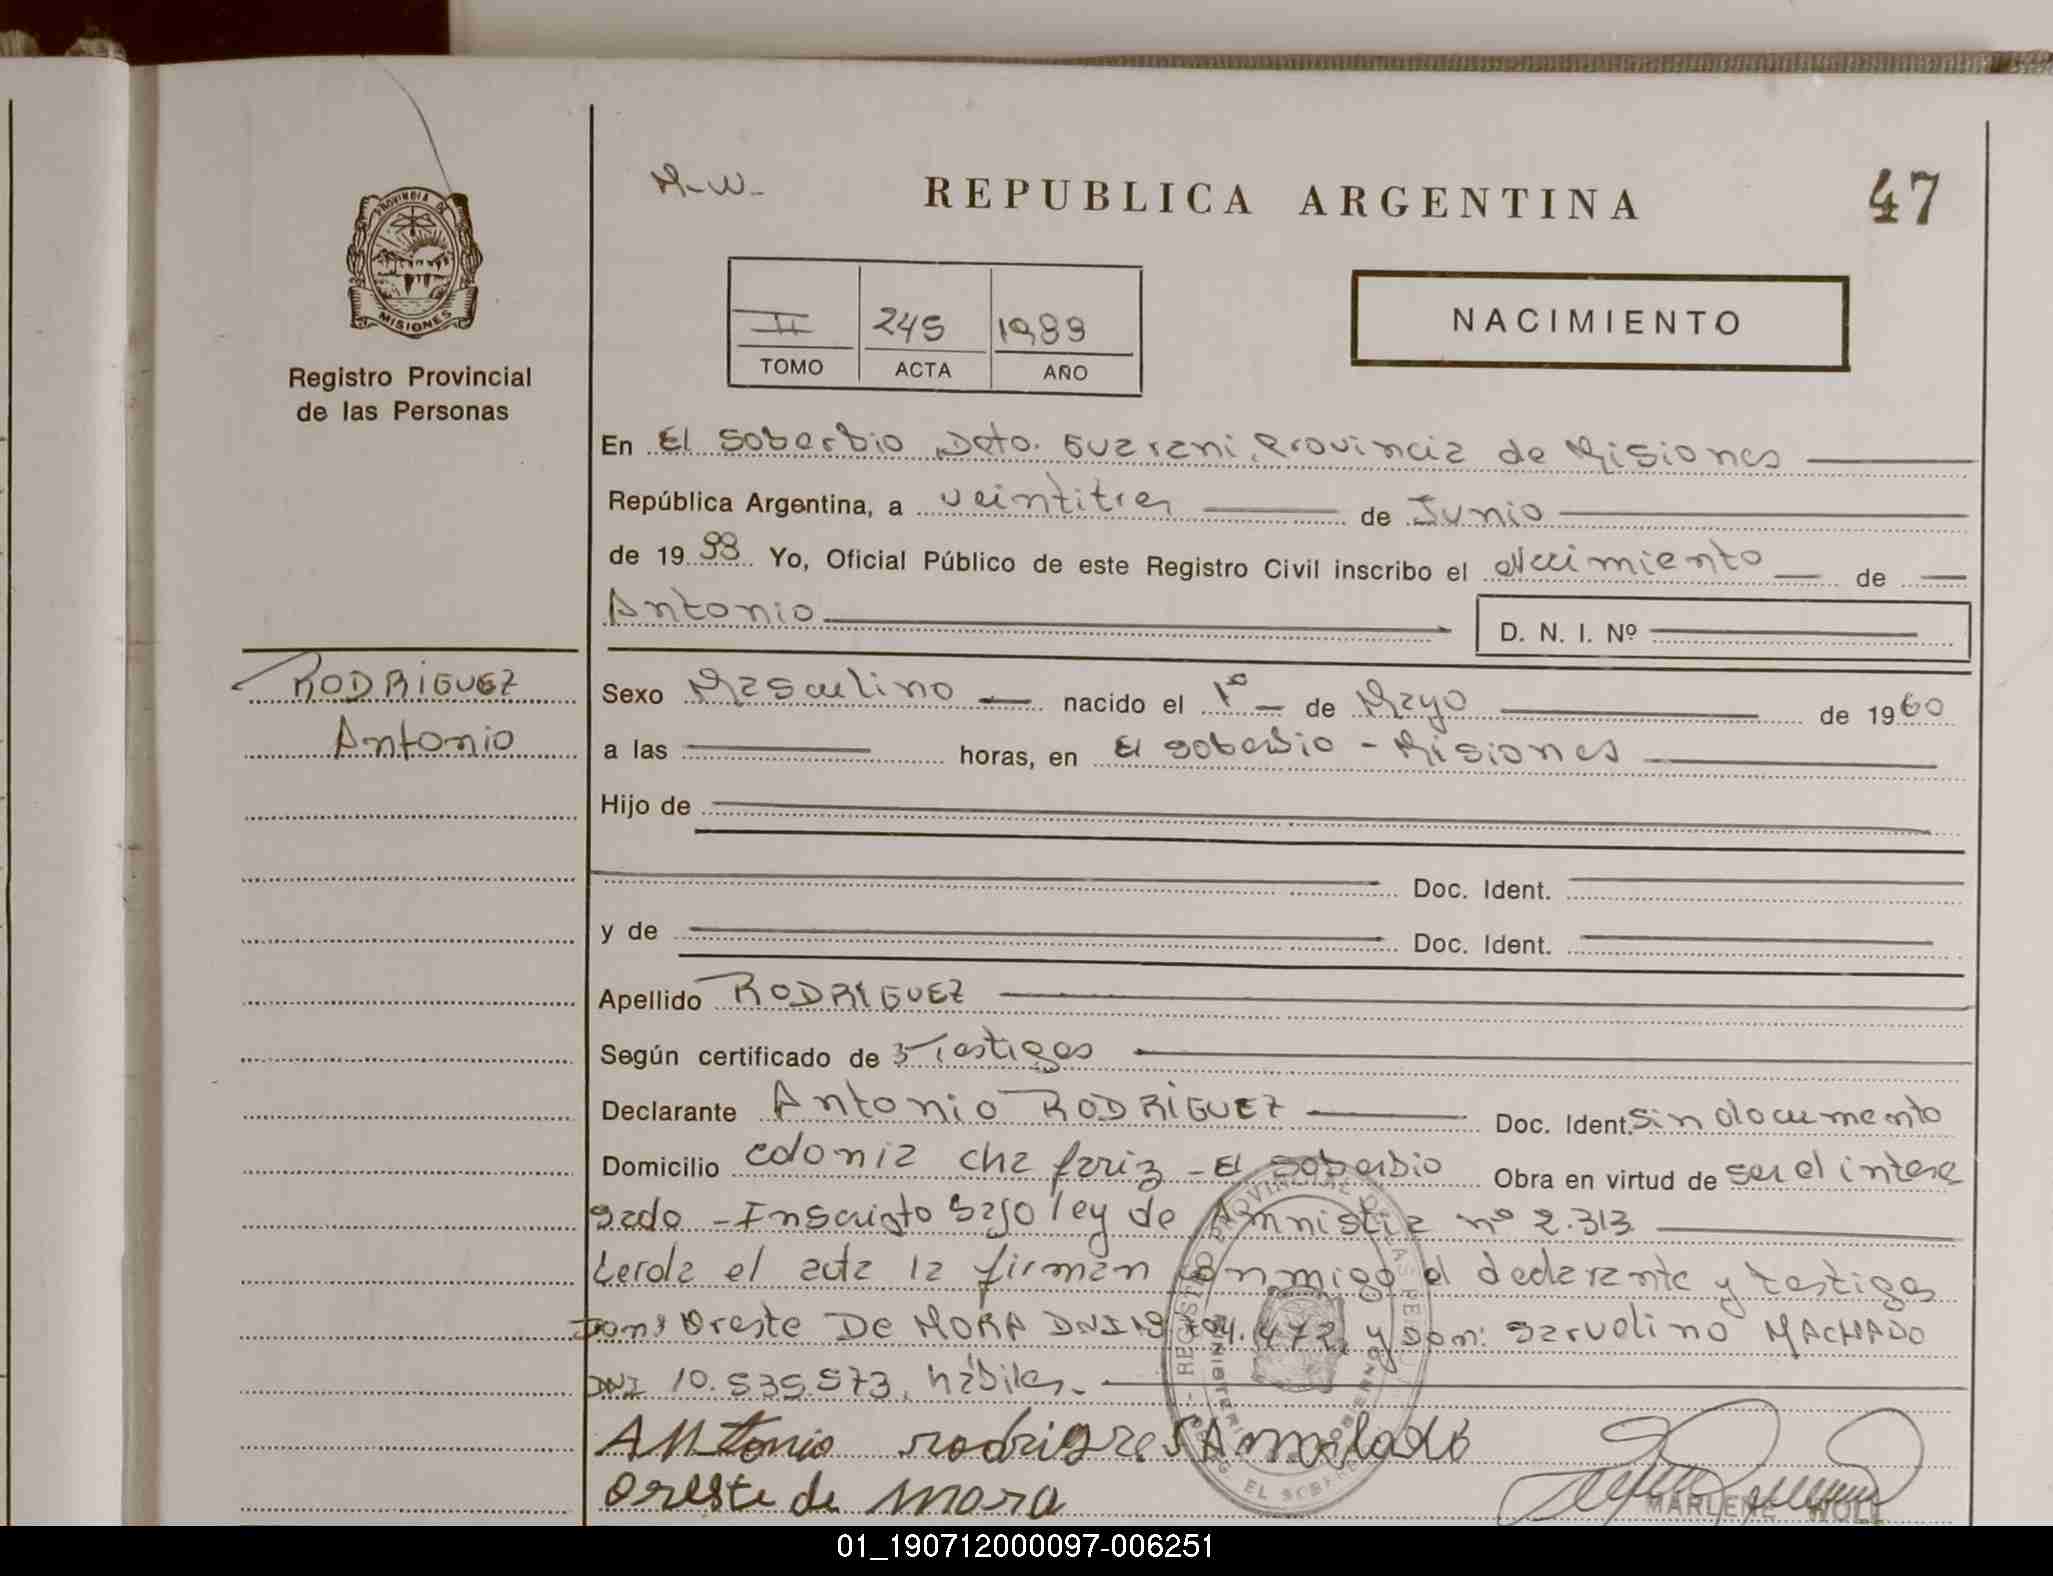 M-W-
REPUBLICA ARGENTINA
47
PROVINCIA DE
MISIONES
Registro Provincial
de las Personas
II 245
TOMO ACTA AÑO
NACIMIENTO
En El Soberbio, Dpto. Guarani, Provincia de Misiones
República Argentina, a veintitres de Junio
de 19 Yo, Oficial Público de este Registro Civil inscribo el Nacimiento de
Antonio
D. N. I. Nº
RODRIGUEZ
Antonio
Sexo Masculino nacido el 1º de Mayo de 1960
a las horas, en El Soberbio - Misiones
Hijo de
Doc. Ident.
y de Doc. Ident.
Apellido RODRIGUEZ
Según certificado de 3 Testigos
Declarante Antonio RODRIGUEZ Doc. Ident. Sin documento
Domicilio colonia Chafariz - El Soberbio Obra en virtud de ser el intere
sado - Inscripto bajo ley de Amnistia nº 2.313
Leida el acta la firman conmigo el declarante y testigos
Don: Oreste DE MORA DNI y Don: Sarvelino MACHADO
DNI 10.535.573, hábiles.-
Antonio rodrigres
Oreste de mora
MARLENE WOLL
01_190712000097-006251